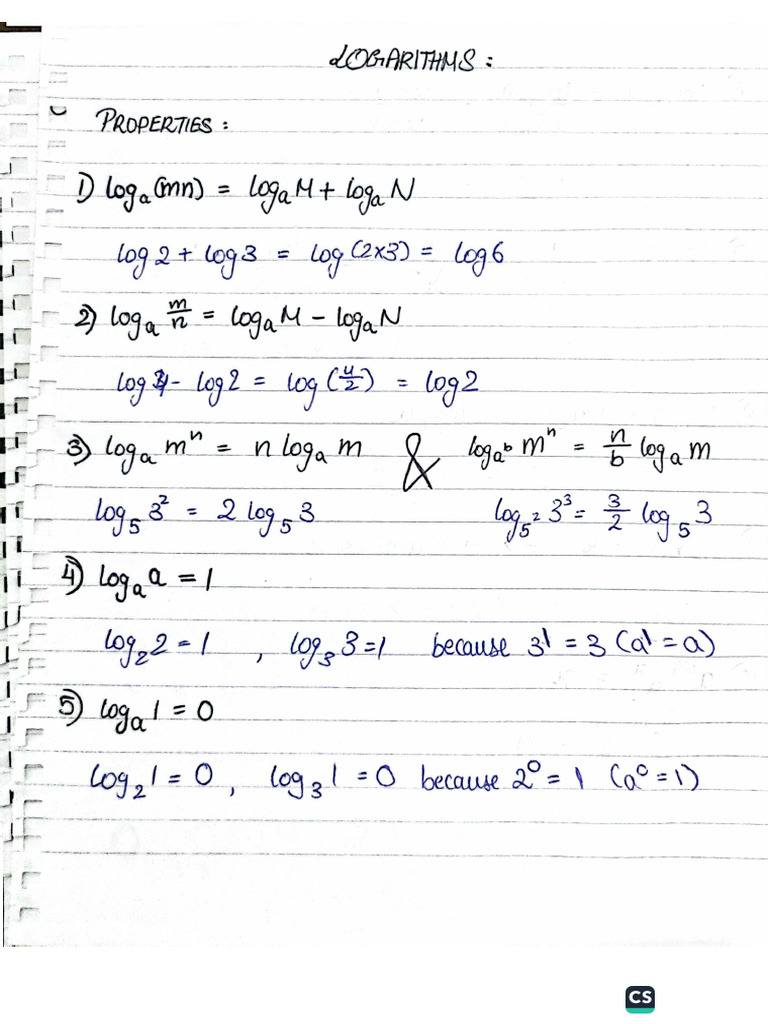 LOGARITHMS :
PROPERTIES :
1) logₐ(mn) = logₐM + logₐN
log 2 + log 3 = log (2×3) = log 6
2) logₐ m/n = logₐM − logₐN
log 4 − log 2 = log (4/2) = log 2
3) logₐ mⁿ = n logₐ m & log_(a^b) mⁿ = n/b logₐ m
log₅ 3² = 2 log₅ 3 log_(5^2) 3³ = 3/2 log₅ 3
4) logₐ a = 1
log₂ 2 = 1 , log₃ 3 = 1 because 3¹ = 3 (a¹ = a)
5) logₐ 1 = 0
log₂ 1 = 0 , log₃ 1 = 0 because 2⁰ = 1 (a⁰ = 1)
CS